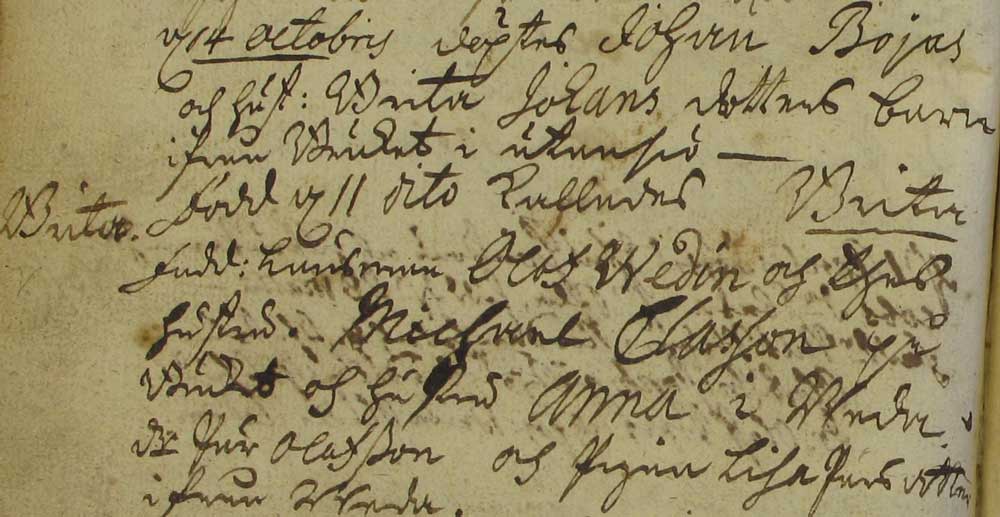 d 14 octobris döptes Johan Bojas
och hust: Brita Johans dotters barn
ifrån Bruket i utansiö —
Brita. född d 11 dito kalledes Brita
Fadd: Länsman Olof Wedin och thes
hustru. Michael Classon på
Bruket och hustru Anna i Weda.
dr: Pär Olofsson och Pigan Lisa Pärs dotter
ifrån Weda.